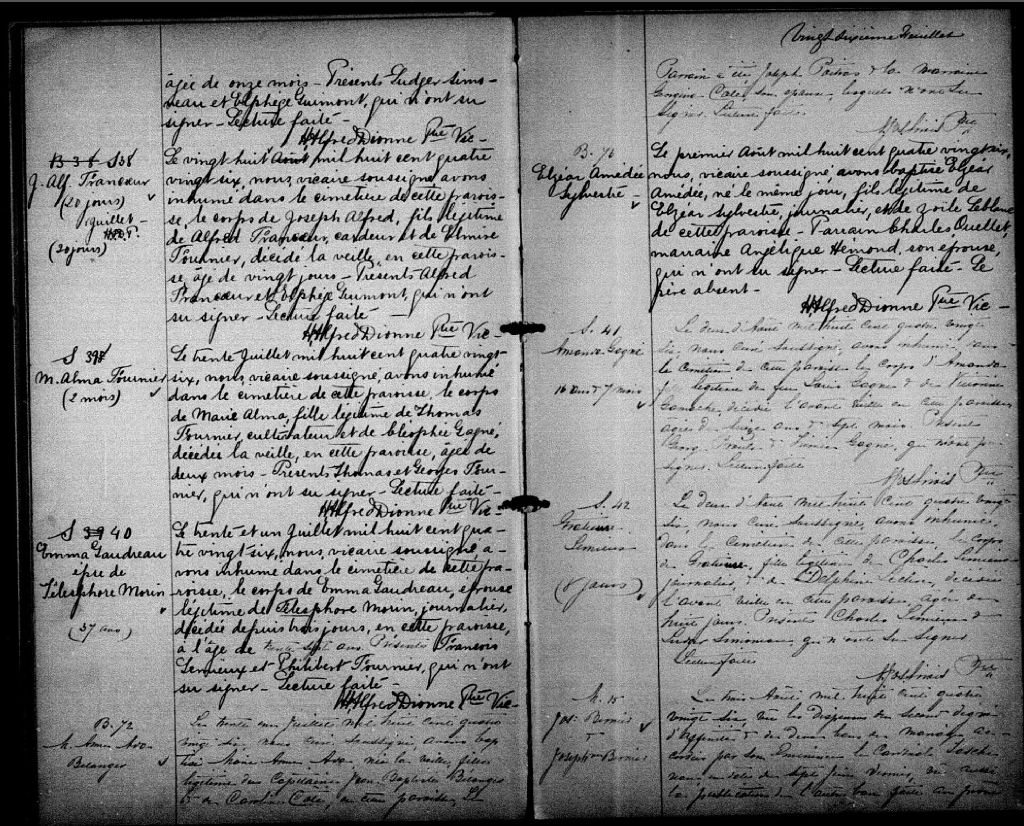 âgée de onze mois - Présents Ludger Sims-
neau et Elphège Guimont, qui n'ont su
signer - Lecture faite -
HAlfred Dionne Ptre Vic-
B 38 S 38
J. Alf. Francœur
(20 jours)
Juillet -
(20 jours)
Le vingt huit Août mil huit cent quatre
vingt six, nous, vicaire soussigné, avons
inhumé dans le cimetière de cette parois-
se, le corps de Joseph Alfred, fils légitime
de Alfred Francœur, cardeur et de Elmire
Fournier, décédé la veille, en cette parois-
se âgé de vingt jours - Présents Alfred
Francœur et Elphège Guimont, qui n'ont
su signer - Lecture faite -
HAlfred Dionne Ptre Vic-
S 39
M. Alma Fournier
(2 mois)
Le trente Juillet mil huit cent quatre vingt-
six, nous, vicaire soussigné, avons inhumé
dans le cimetière de cette paroisse, le corps
de Marie Alma, fille légitime de Thomas
Fournier, cultivateur et de Cléophée Gagné,
décédée la veille, en cette paroisse, âgée de
deux mois - Présents Thomas et Georges Four-
nier, qui n'ont su signer - Lecture faite -
HAlfred Dionne Ptre Vic-
S 39 40
Emma Gaudreau
épse de
Télesphore Morin
(37 ans)
Le trente et un Juillet mil huit cent qua-
tre vingt six, nous, vicaire soussigné a-
vons inhumé dans le cimetière de cette pa-
roisse, le corps de Emma Gaudreau, épouse
légitime de Télesphore Morin, journalier,
décédée depuis trois jours, en cette paroisse,
à l'âge de trente sept ans. Présents François
Lemieux et Philibert Fournier, qui n'ont
su signer - Lecture faite -
HAlfred Dionne Ptre Vic-
B. 72
M. Amen Ava
Belanger
Le trente un Juillet mil huit cent quatre
vingt six, nous curé, soussigné, avons bap
tisé Marie Amen Ava, née la veille, fille
légitime du Capitaine Jean Baptiste Belanger
& de Caroline Coté, de cette paroisse. Le
Vingt sixième Feuillet
Parrain a été Joseph Poitras & la Marraine
Coté, son épouse, lesquels n'ont su
signer. Lecture faite.
Ptre
B. 73
Elzéar Amédée
Sylvestre
Le premier Août mil huit cent quatre vingt six,
nous, vicaire soussigné, avons baptisé Elzéar
Amédée, né le même jour, fils légitime de
Elzéar Sylvestre, journalier, et de Zoïle Leblanc
de cette paroisse - Parrain Charles Ouellet,
marraine Angélique Hémond, son épouse,
qui n'ont su signer - Lecture faite - Le
père absent -
HAlfred Dionne Ptre Vic-
S. 41
Amanda Gagné
16 ans & 7 mois
Le deux d'Août mil huit cent quatre vingt
six, nous curé soussigné, avons inhumé, dans
le Cimetière de cette paroisse le corps d'Amanda
fille légitime de feu Gagné & de
décédée l'avant veille en cette paroisse
agée de seize ans & sept mois Présents
Georges & Gagné, qui n'ont pu
signer. Lecture faite
Ptre
S. 42
Gratieuse
Lemieux
(8 jours)
Le deux d'Août mil huit cent quatre vingt
six, nous curé soussigné, avons inhumé
dans le cimetière de cette paroisse le corps
de Gratieuse, fille légitime de Charles Lemieux
journalier, & de Delphine, décédée
l'avant veille en cette paroisse, agée de
huit jours. Présents Charles Lemieux &
Ludger Simoneau, qui n'ont su signer
Lecture faite
Ptre
M. 15
Jos. Bernier
&
Josephte Bernier
Le trois Août mil huit cent quatre
vingt six, vu les dispenses du second degré
d'affinité & de deux bans de mariage, ac-
cordées par son Eminence le Cardinal Tasche-
reau, en date du sept Juin dernier, vu aussi
la publication de l'autre ban faite au prône